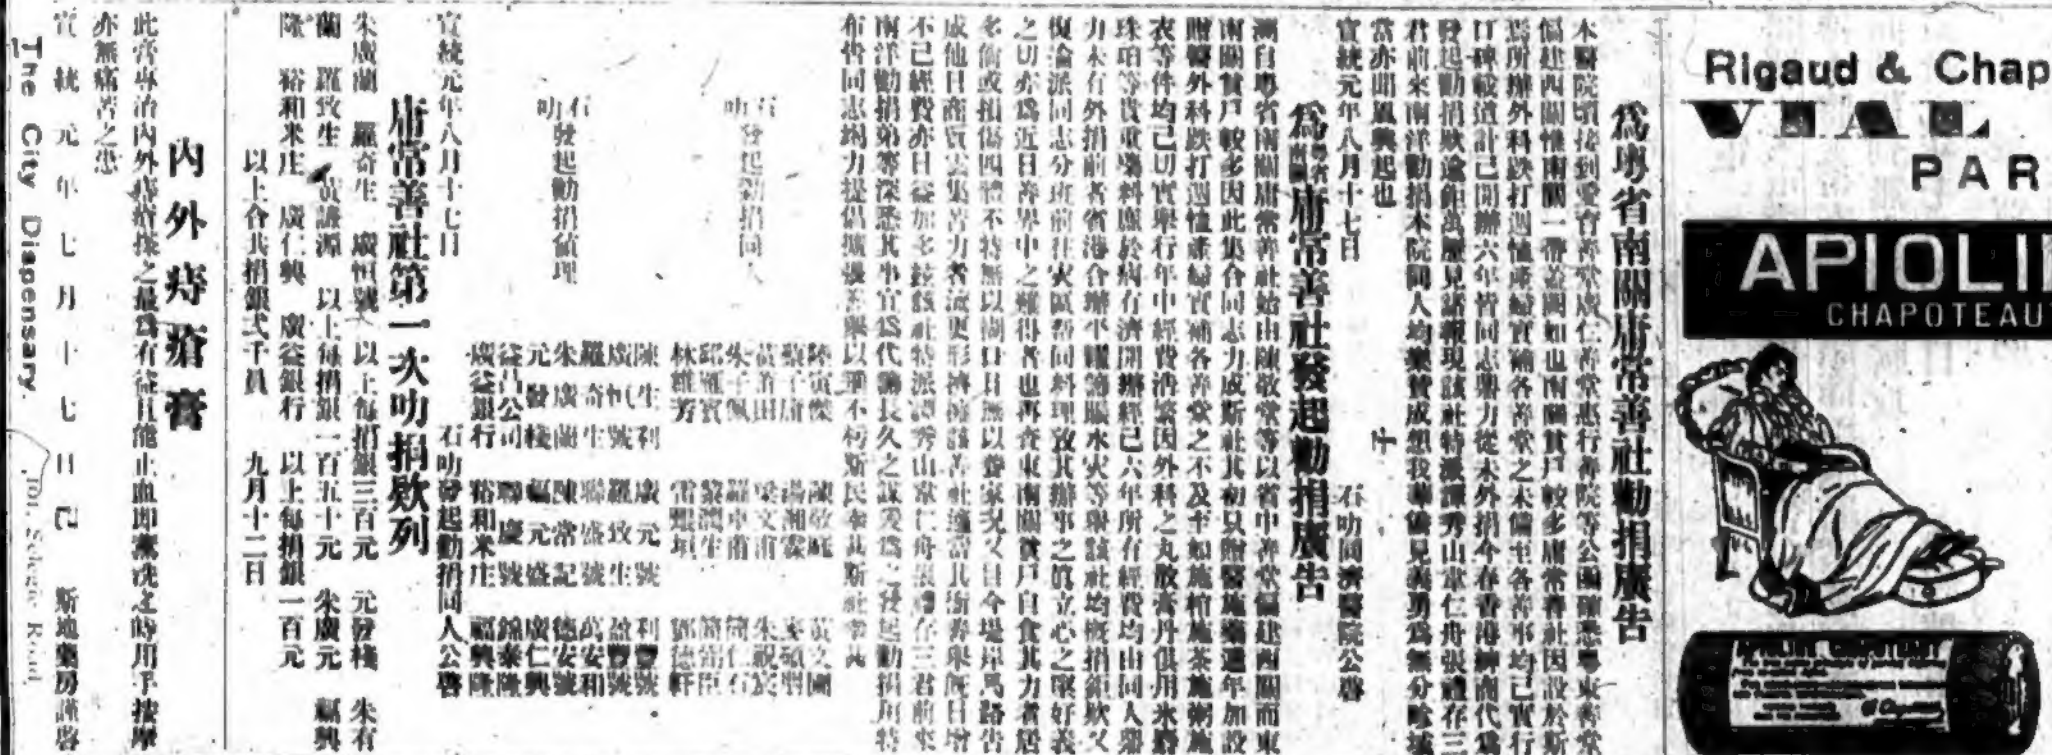 Rigaud & Chap
VIAL
PAR
APIOLIN
CHAPOTEAUT
為粵省南關庸常善社勸捐廣告
本醫院頃接到愛育善堂廣仁善堂惠行善院等公函確悉粵東善堂
偏建西關惟南關一帶蓋闕如也南關貧戶較多庸常善社因設於斯
焉所辦外科跌打週恤產婦實補各善堂之未備至各善事均已實行
口碑載道計已開辦六年皆同志竭力從未外捐今春香港紳商代為
發起勸捐欵逾鉅萬歷見諸報現該社特派譚秀山韋仁舟張禮存三
君前來南洋勸捐本院同人均樂贊成想我華僑見義勇為無分畛域
當亦聞風興起也
宣統元年八月十七日 石叻同濟醫院公啓
為粵省南關庸常善社發起勸捐廣告
溯自粵省南關庸常善社始由陳敬堂等以省中善堂偏建西關而東
南關貧戶較多因此集合同志力成斯社其初只贈醫施藥遞年加設
贈醫外科跌打週恤產婦實補各善堂之不及至如施棺施茶施粥施
衣等件均已切實舉行年中經費浩繁因外科之丸散膏丹俱用氷麝
珠珀等貴重藥料應於病有濟開辦經已六年所有經費均由同人竭
力未有外捐前者省港合辦平糶籌賑水灾等舉該社均概捐鉅欵又
復諭派同志分班前往灾區帮同料理故其辦事之眞立心之摯好義
之切亦為近日善界中之難得者也再查東南關貧戶自食其力者居
多倘或損傷四體不特無以餬口且無以養家況又目今堤岸馬路告
成他日商賈雲集苦力者流更形擠擁該善社適當其衝善舉既日增
不已經費亦日益加多茲該社特派譚秀山韋仁舟張禮存三君前來
南洋勸捐弟等深悉其事宜為代籌長久之謀爰為之發起勸捐用特
布告同志竭力提倡擴張善舉以垂不朽斯民幸甚斯社幸甚
石叻發起勸捐同人
陸寅傑
張子庸
黃甫田
朱子佩
邱雁賓
林維芳
石叻發起勸捐值理
陳生利 廣元號 利豐號
廣恒號 羅致生 盈豐號
羅奇生 聯盛號 萬安和
朱廣蘭 陳常記 德安號
元發棧 福元盛 廣仁興
益昌公司 聯慶號 錦泰隆
廣益銀行 裕和米庄 福興隆
宣統元年八月十七日 石叻發起勸捐同人公啓
庸常善社第一次叻捐欵列
朱廣蘭 羅奇生 廣恒號 以上每捐銀三百元 元發棧 朱有
蘭 羅致生 黃謙源 以上每捐銀一百五十元 朱廣元 福興
隆 裕和米庄 廣仁興 廣益銀行 以上每捐銀一百元
以上合共捐銀式千員 九月十二日
內外痔瘡膏
此膏專治內外痔瘡搽之最為有益且能止血即熏洗之時用手按摩
亦無痛苦之患
宣統元年七月十七日己 斯地藥房謹啓
The City Dispensary.